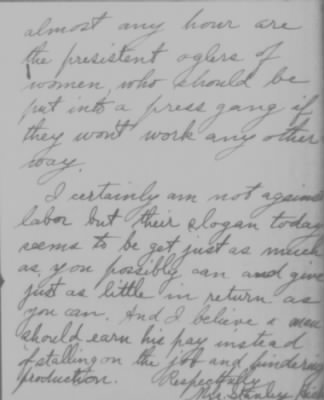 almost any hour are
the presistent oglers of
women, who should be
put into a press gang if
they won't work any other
way.
I certainly am not against
labor but their slogan today
seems to be get just as much
as you possibly can and give
just as little in return as
you can. And I believe a man
should earn his pay instead
of stalling on the job and hindering
production. Respectfully
Mrs. Stanley